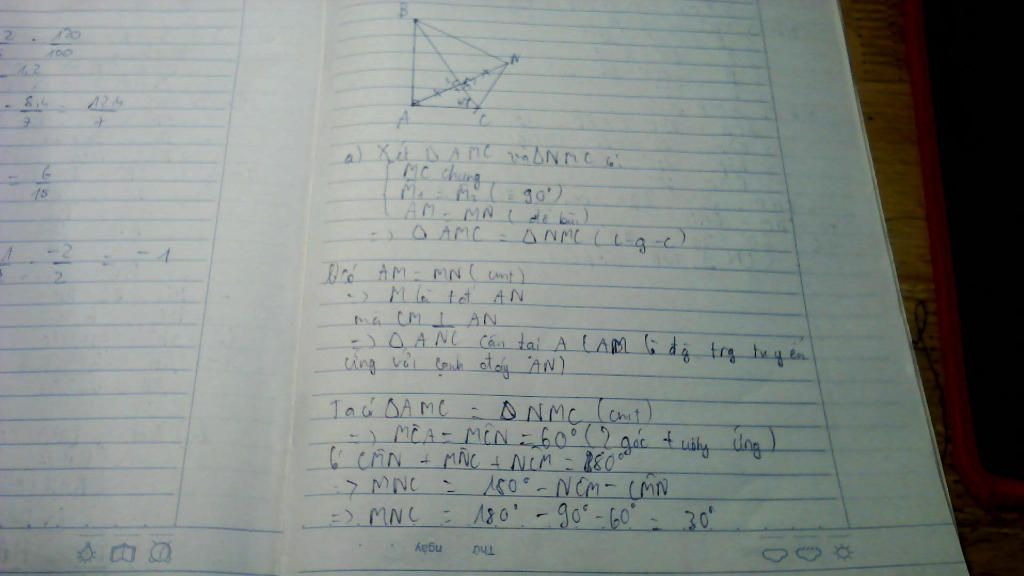 2 . 120
100
= 1,2
. 8,4 = 12,4
7 7
= 6
15
1 . -2 = -1
2
B
N
A C
a) Xét Δ AMC và ΔNMC có
MC chung
M̂₁ = M̂₂ (= 90°)
AM = MN (đề bài)
=> Δ AMC = Δ NMC (c-g-c)
AM = MN (cmt)
=> M là AN
mà CM ⊥ AN
=> Δ ANC cân tại A (AM là trg tuyến
ứng với cạnh đáy AN)
Ta có ΔAMC = Δ NMC (cmt)
=> MĈA = MĈN = 60° (2 góc tương ứng)
Có CM̂N + MN̂C + NĈM = 180°
=> MNC = 180° - NĈM - CM̂N
=> MNC = 180° - 90° - 60° = 30°
Thứ ngày